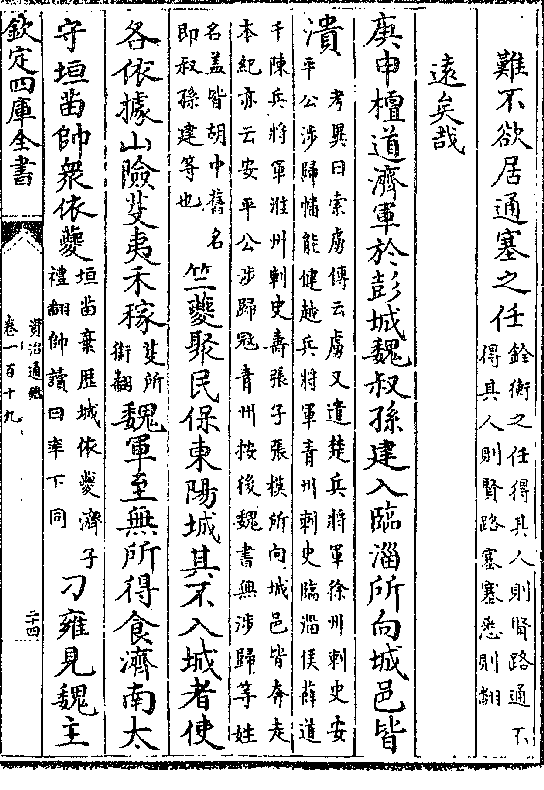 難不欲居通塞之任銓衡之任得其人則賢路通不
得其人則賢路塞塞悉則翻
遠矣哉
庚申檀道濟軍於彭城魏叔孫建入臨淄所向城邑皆
潰考異曰索虜傳云虜又遣楚兵將軍徐州刺史安
平公涉歸幡能健越兵將軍青州刺史臨淄侯薛道
千陳兵將軍淮州刺史壽張子張模所向城邑皆奔走
本紀亦云安平公涉歸冦青州按後魏書無涉歸等姓
名盖皆胡中舊名
即叔孫建等也
竺夔聚民保東陽城其不入城者使
各依據山險芟夷禾稼芟所
銜翻
魏軍至無所得食濟南太
守垣苗帥衆依夔垣苗棄歴城依夔濟子
禮翻帥讀曰率下同
刁雍見魏主
欽定四庫全書
資治通鑑
卷一百十九
二十四